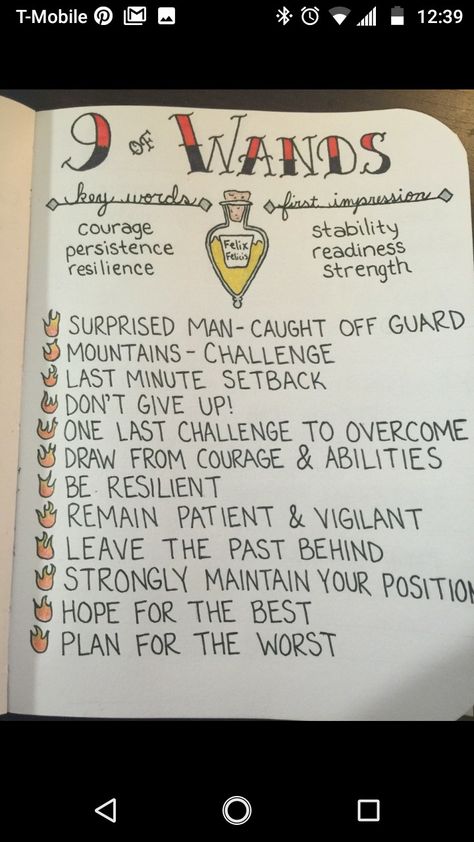 T-Mobile
12:39
9 OF WANDS
key words
first impression
courage
persistence
resilience
Felix
Felicis
stability
readiness
strength
SURPRISED MAN - CAUGHT OFF GUARD
MOUNTAINS - CHALLENGE
LAST MINUTE SETBACK
DON'T GIVE UP!
ONE LAST CHALLENGE TO OVERCOME
DRAW FROM COURAGE & ABILITIES
BE RESILIENT
REMAIN PATIENT & VIGILANT
LEAVE THE PAST BEHIND
STRONGLY MAINTAIN YOUR POSITION
HOPE FOR THE BEST
PLAN FOR THE WORST